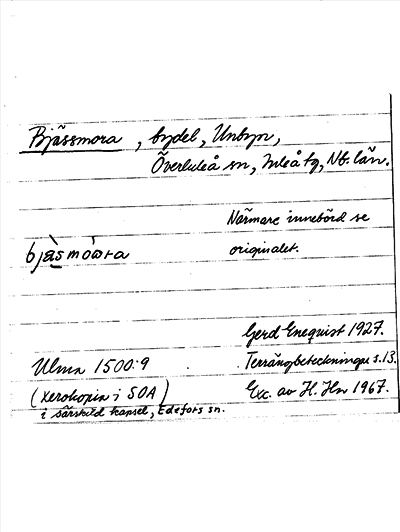 Bjässmora, bydel, Unbyn,
Överluleå sn, Luleå tg, Nb. län.
Närmare innebörd se
bjäsmoɷra originalet.
Gerd Enequist 1927.
Ulma 1500:9 Terrängbeteckningar s.13.
(xerokopia i SOA) Exc. av H. Hn 1967.
i särskild kapsel, Edefors sn.